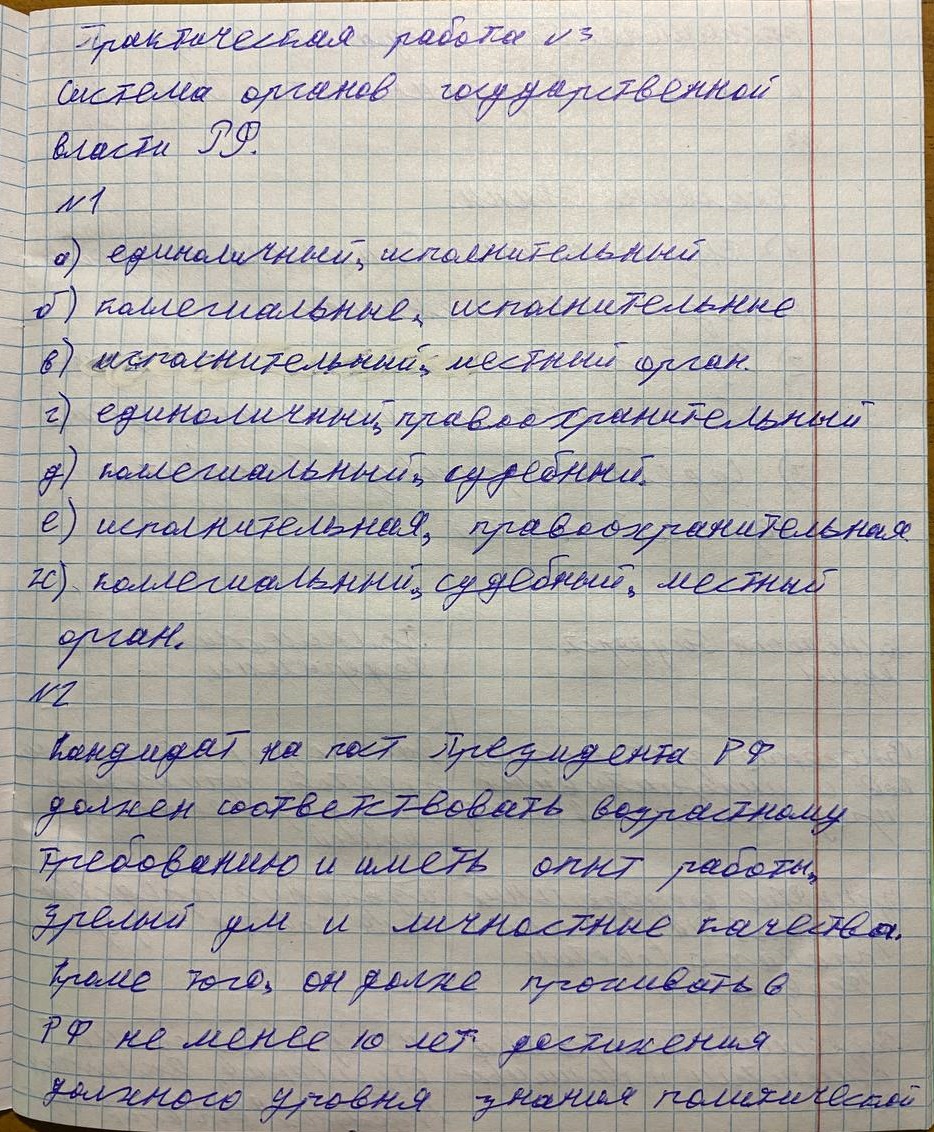 Практическая работа №3
Система органов государственной
власти РФ.
№1
а) единоличный, исполнительный
б) коллегиальные, исполнительные
в) исполнительный, местный орган.
г) единоличный, правоохранительный
д) коллегиальный, судебный.
е) исполнительная, правоохранительная
ж) коллегиальный, судебный, местный
орган.
№2
Кандидат на пост Президента РФ
должен соответствовать возрастному
требованию и иметь опыт работы,
зрелый ум и личностные качества.
Кроме того, он долже проживать в
РФ не менее 10 лет достижения
должного уровня знания политической